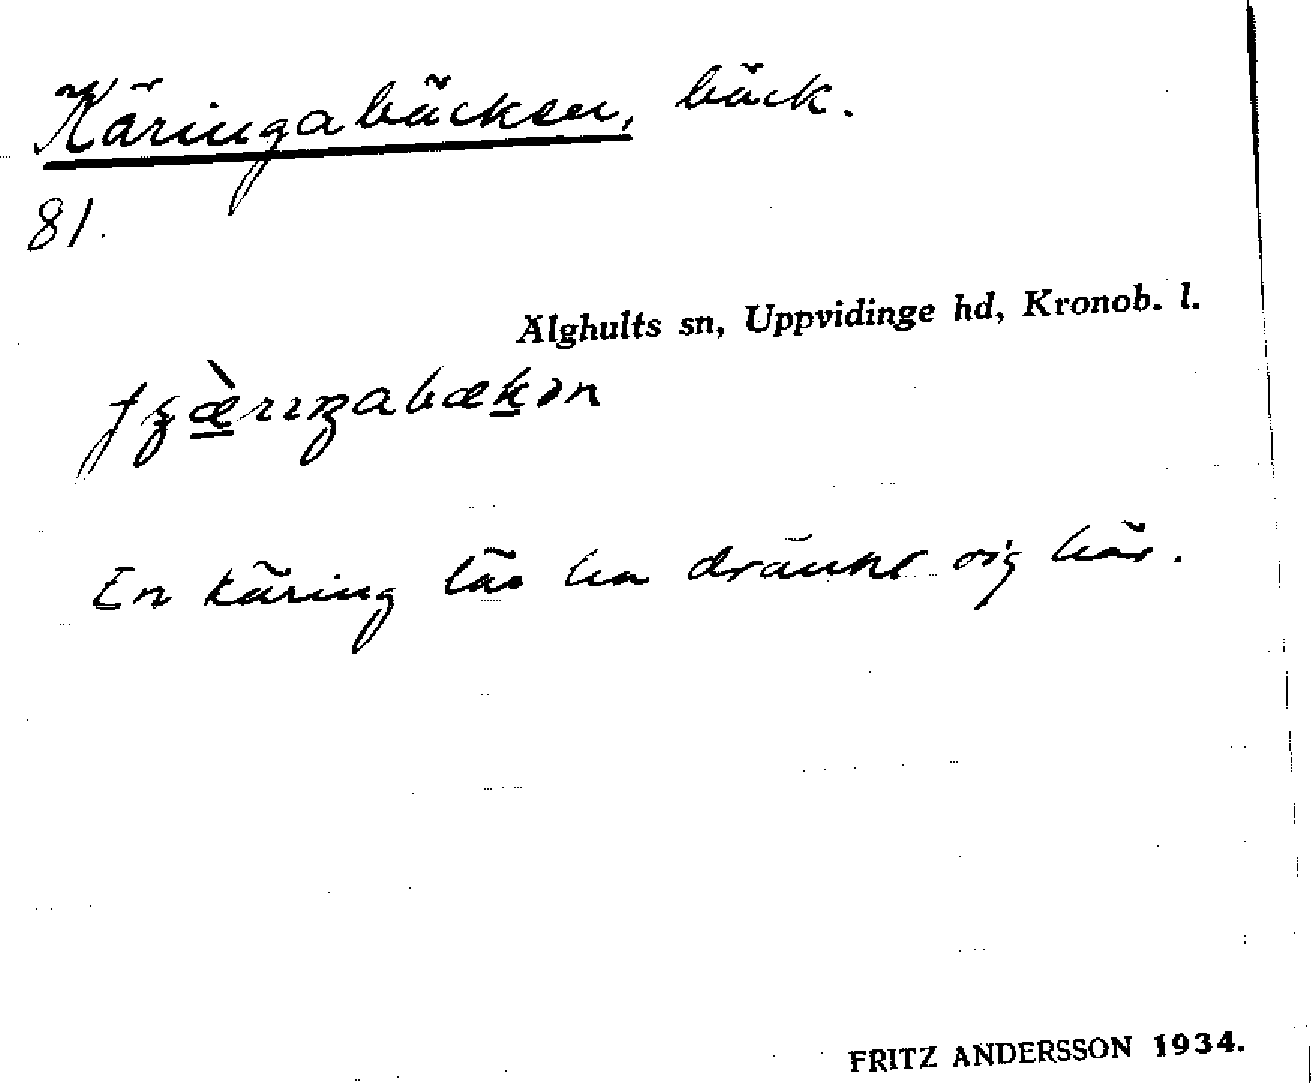 Käringabäcken, bäck.
81.
Älghults sn, Uppvidinge hd, Kronob. l.
En käring läs ha dränkt sig här.
FRITZ ANDERSSON 1934.